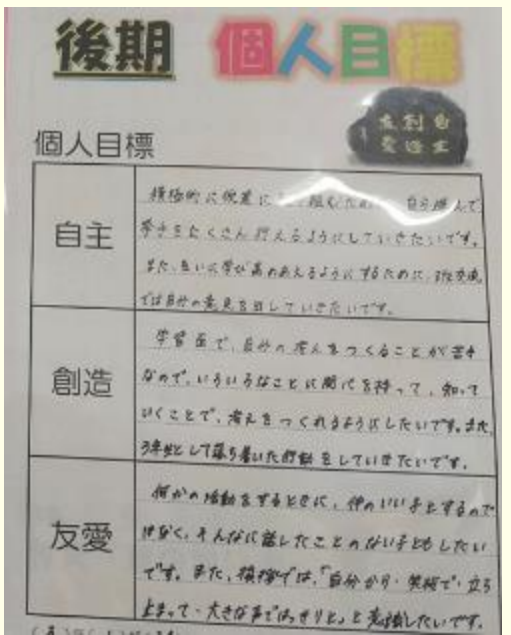 後期 個人目標
友創自
愛造主
個人目標
自主
積極的に授業に り組むために、自分から進んで
挙手をたくさん行えるようにしていきたいです。
また、互いに学び高めあえるようにするために、班交流
では自分の意見を出していきたいです。
創造
学習面で、自分の考えをつくることが苦手
なので、いろいろなことに関心を持って、知って
いくことで、考えをつくれるようにしたいです。また、
3年生として落ち着いた行動をしていきたいです。
友愛
何かの活動をするときに、仲のいい子とするので
はなく、そんなに話したことのない子ともしたい
です。また、挨拶では、「自分から・笑顔で・立ち
止まって・大きな声ではっきりと」と意識したいです。